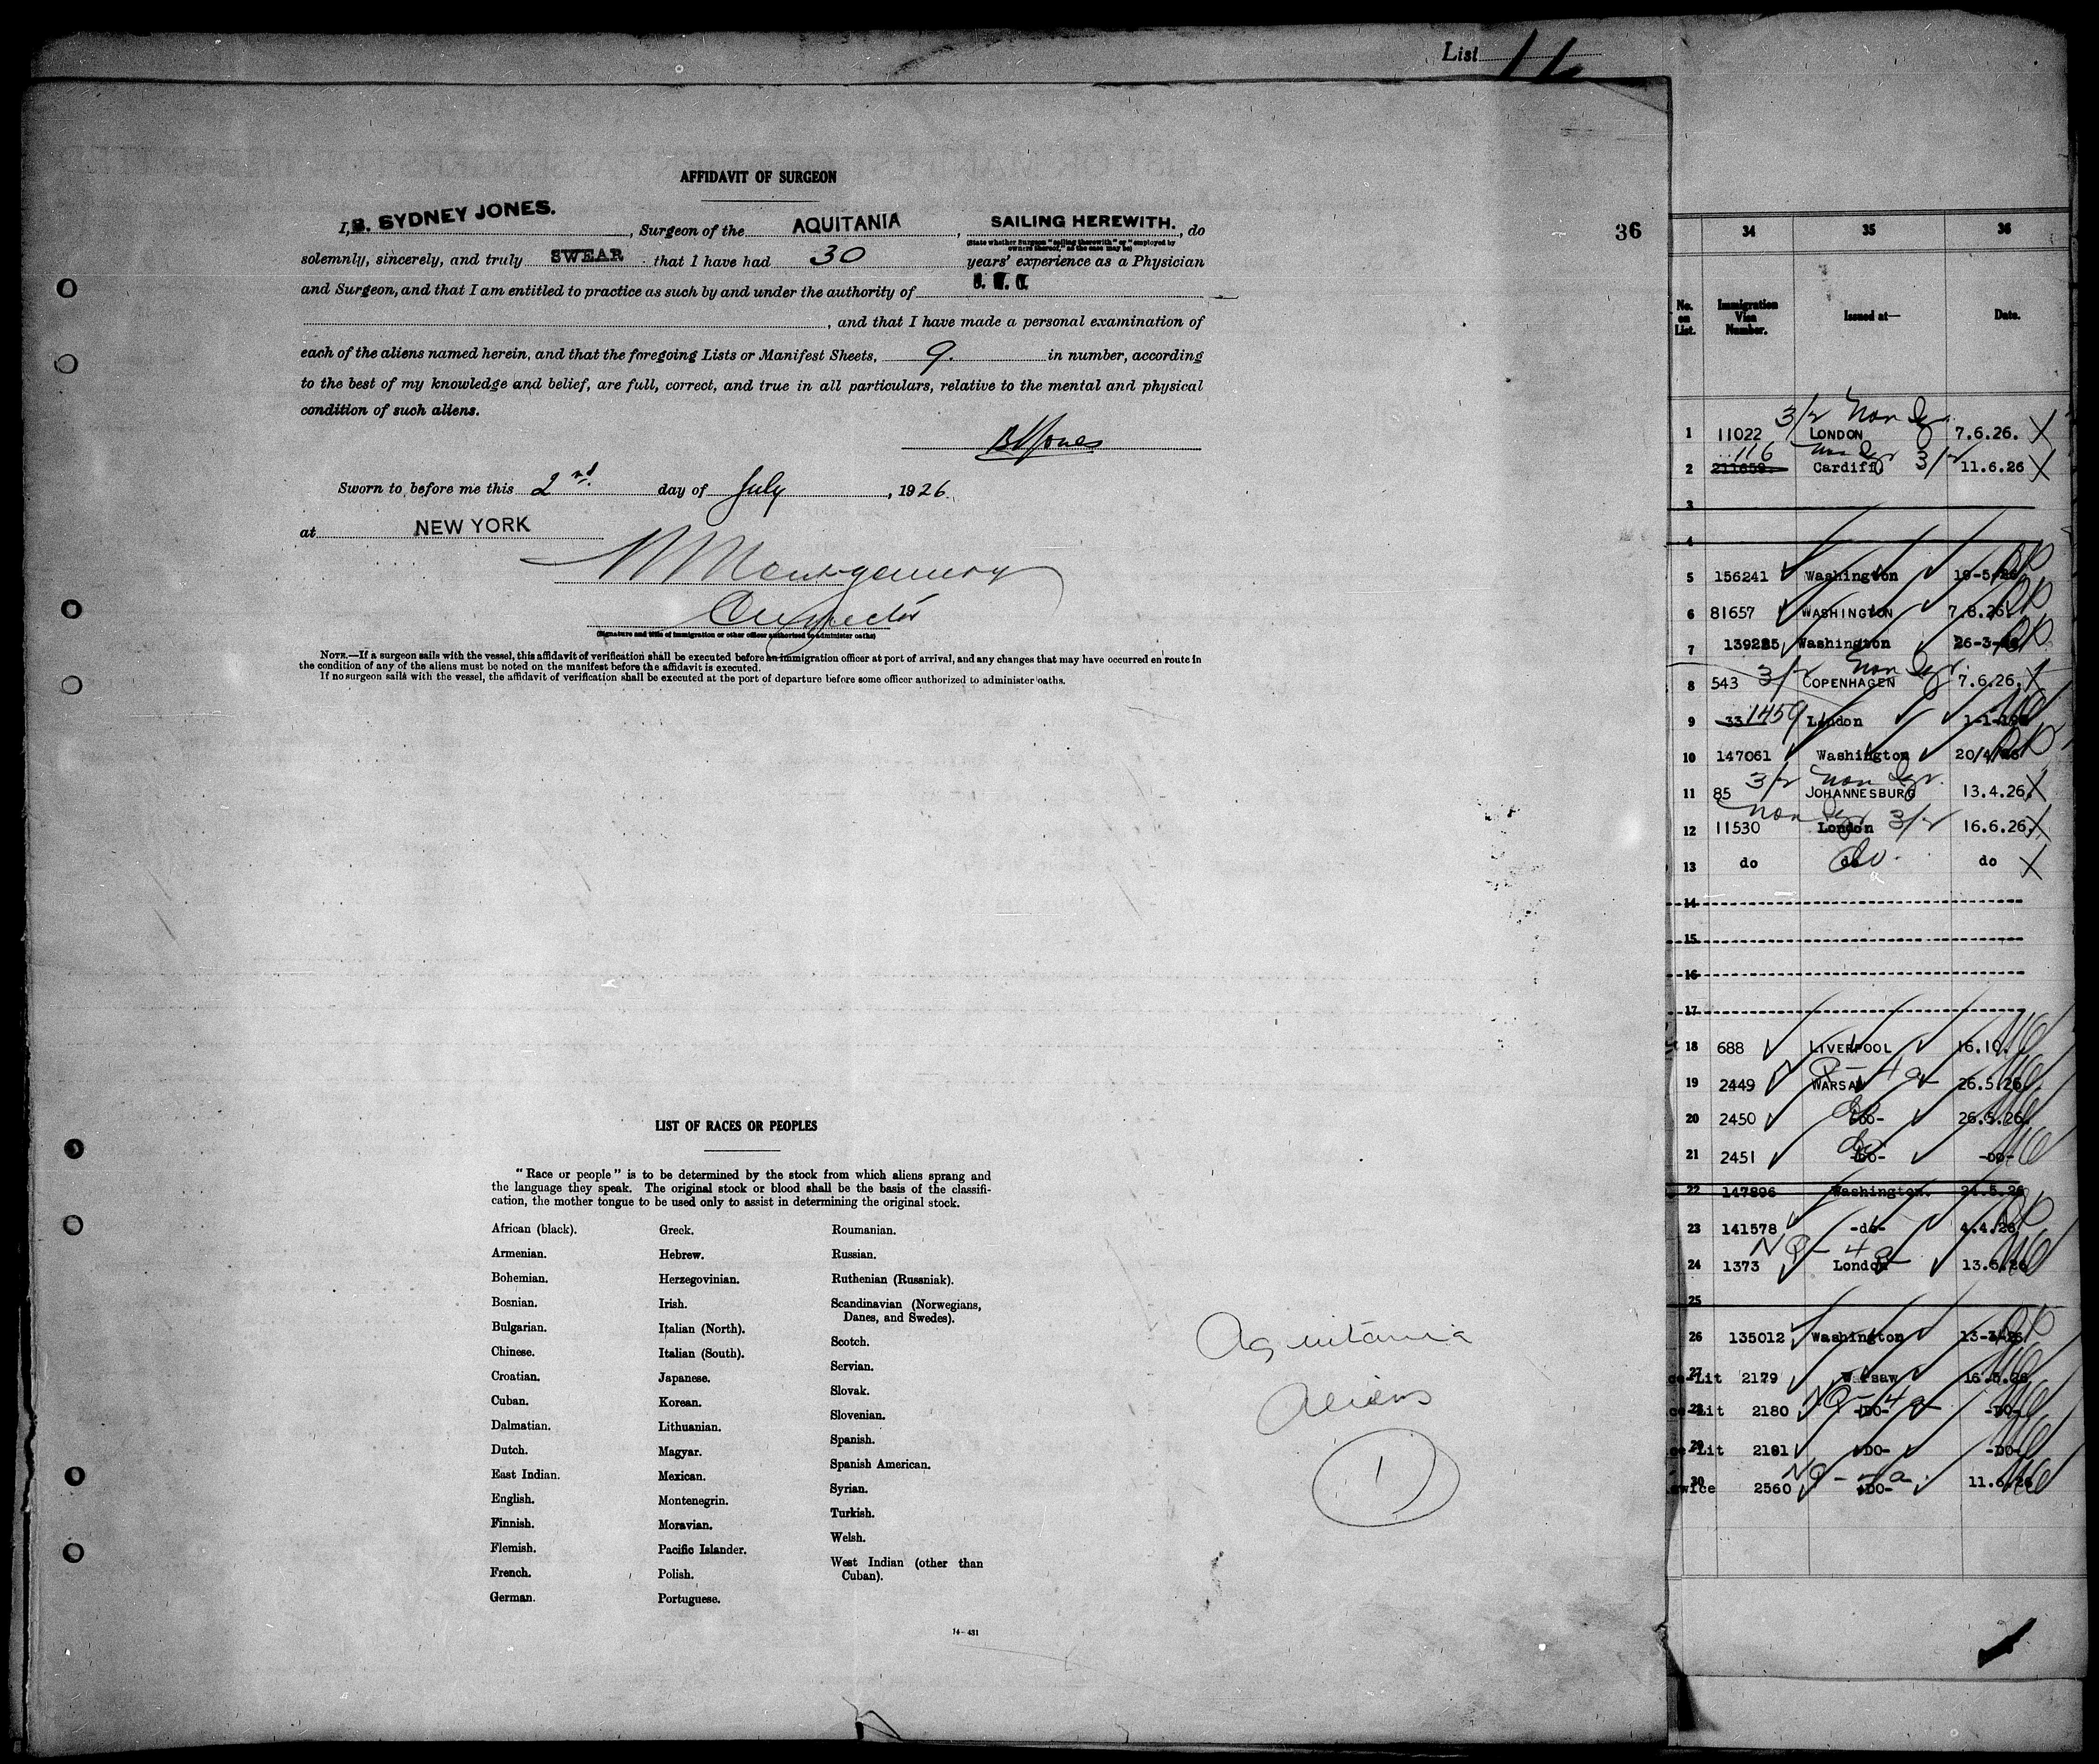 List 11
AFFIDAVIT OF SURGEON
I, B. SYDNEY JONES. , Surgeon of the AQUITANIA , SAILING HEREWITH. , do
(State whether Surgeon "sailing therewith" or "employed by owners thereof," as the case may be)
solemnly, sincerely, and truly SWEAR that I have had 30 years' experience as a Physician
and Surgeon, and that I am entitled to practice as such by and under the authority of
, and that I have made a personal examination of
each of the aliens named herein, and that the foregoing Lists or Manifest Sheets, 9. in number, according
to the best of my knowledge and belief, are full, correct, and true in all particulars, relative to the mental and physical
condition of such aliens.
BSJones
Sworn to before me this 2nd. day of July , 1926.
at NEW YORK
Montgomery
Inspector
(Signature and title of immigration or other officer authorized to administer oaths)
NOTE.—If a surgeon sails with the vessel, this affidavit of verification shall be executed before an immigration officer at port of arrival, and any changes that may have occurred en route in
the condition of any of the aliens must be noted on the manifest before the affidavit is executed.
If no surgeon sails with the vessel, the affidavit of verification shall be executed at the port of departure before some officer authorized to administer oaths.
LIST OF RACES OR PEOPLES
"Race or people" is to be determined by the stock from which aliens sprang and
the language they speak. The original stock or blood shall be the basis of the classifi-
cation, the mother tongue to be used only to assist in determining the original stock.
African (black).
Armenian.
Bohemian.
Bosnian.
Bulgarian.
Chinese.
Croatian.
Cuban.
Dalmatian.
Dutch.
East Indian.
English.
Finnish.
Flemish.
French.
German.
Greek.
Hebrew.
Herzegovinian.
Irish.
Italian (North).
Italian (South).
Japanese.
Korean.
Lithuanian.
Magyar.
Mexican.
Montenegrin.
Moravian.
Pacific Islander.
Polish.
Portuguese.
Roumanian.
Russian.
Ruthenian (Russniak).
Scandinavian (Norwegians,
Danes, and Swedes).
Scotch.
Servian.
Slovak.
Slovenian.
Spanish.
Spanish American.
Syrian.
Turkish.
Welsh.
West Indian (other than
Cuban).
14-431
Aquitania
Aliens
1
36
34 35 36
No. on List. Immigration Visa Number. Issued at— Date.
3/2 Non
1 11022 LONDON 7.6.26. X
116
2 211659. Cardiff. 3/2 11.6.26 X
3
4
5 156241 Washington
6 81657 WASHINGTON 7.8.26.
7 139225 Washington 26-3-
3/2 Non
8 543 COPENHAGEN 7.6.26. X
9 33 1459 London
10 147061 Washington 20/4/26
3/2 Non
11 85 JOHANNESBURG 13.4.26. X
Non 3/2
12 11530 London 16.6.26. X
13 do do. do X
14
15
16
17
18 688 LIVERPOOL 16.10.
NQ-4a
19 2449 WARSAW 26.5.26.
20 2450 -DO- 26.5.26.
21 2451 -DO- -DO-
22 147896 Washington. 24.5.26
23 141578 -do- 4.4.26
NQ-4a
24 1373 London
25
26 135012 Washington
27 ce-Lit 2179 Warsaw 16.5.26
NQ-4a
28 ce-Lit 2180 -DO- -DO-
29 ce-Lit 2181 -DO- -DO-
NQ-4a
30 2560 -DO- 11.6.26